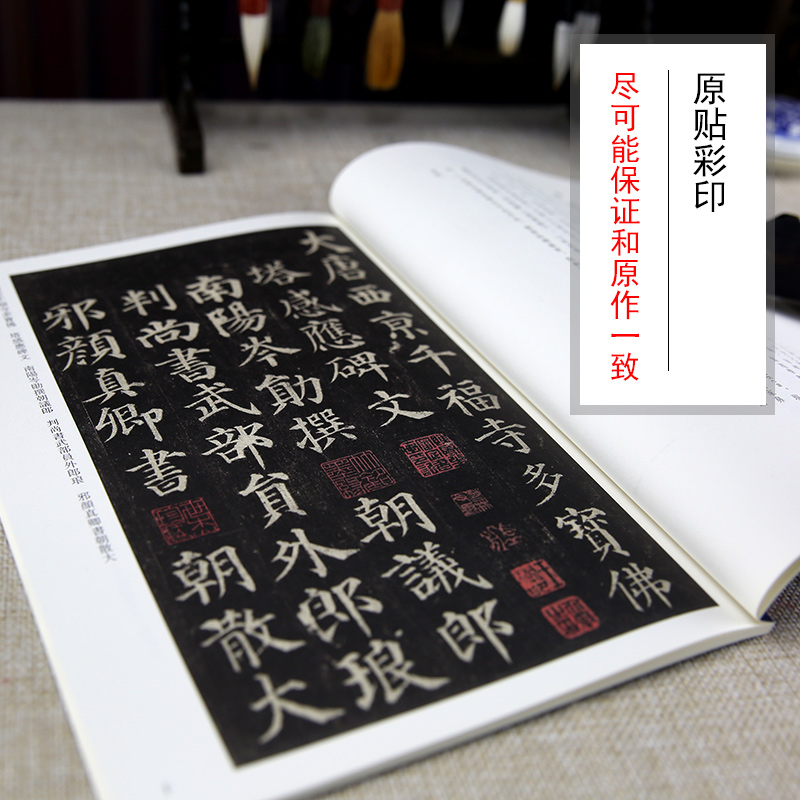 原贴彩印
尽可能保证和原作一致
大唐西京千福寺多寶佛
塔感應碑文
南陽岑勛撰 朝議郎
判尚書武部員外郎琅
邪顏真卿書 朝散大
多寶佛 塔感應碑文 南陽岑勛撰朝議郎 判尚書武部員外郎琅 邪顏真卿書朝散大